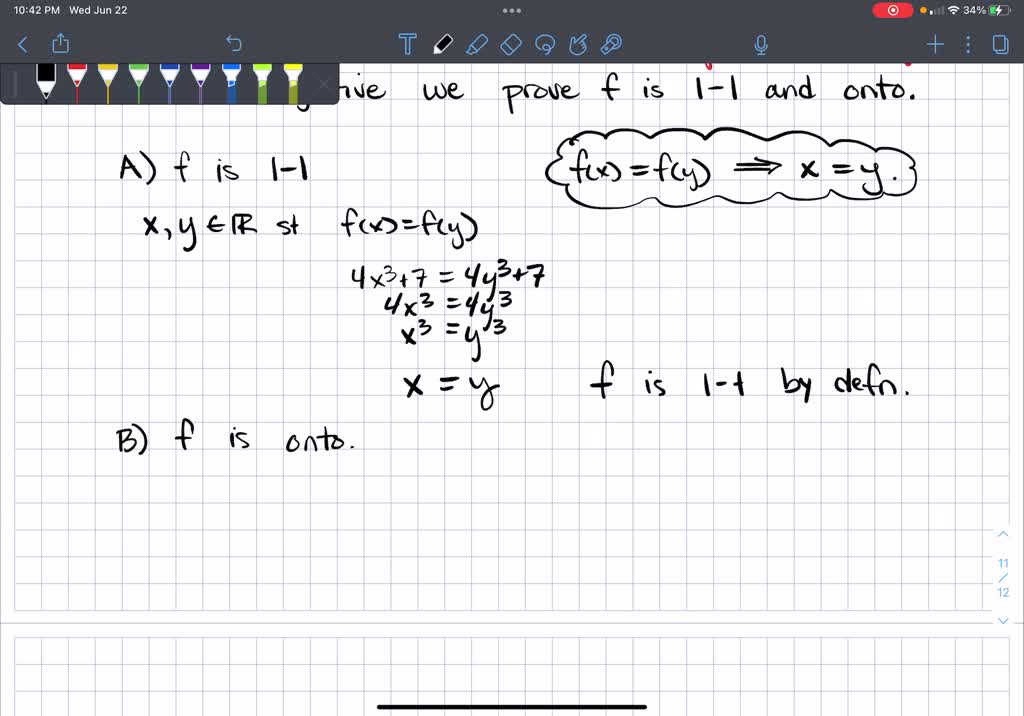 10:42 PM Wed Jun 22
34%
we prove f is 1-1 and onto.
A) f is 1-1
f(x) = f(y) ⟹ x = y.
x, y ∈ ℝ st f(x) = f(y)
4x³+7 = 4y³+7
4x³ = 4y³
x³ = y³
x = y f is 1-1 by defn.
B) f is onto.
11
/
12